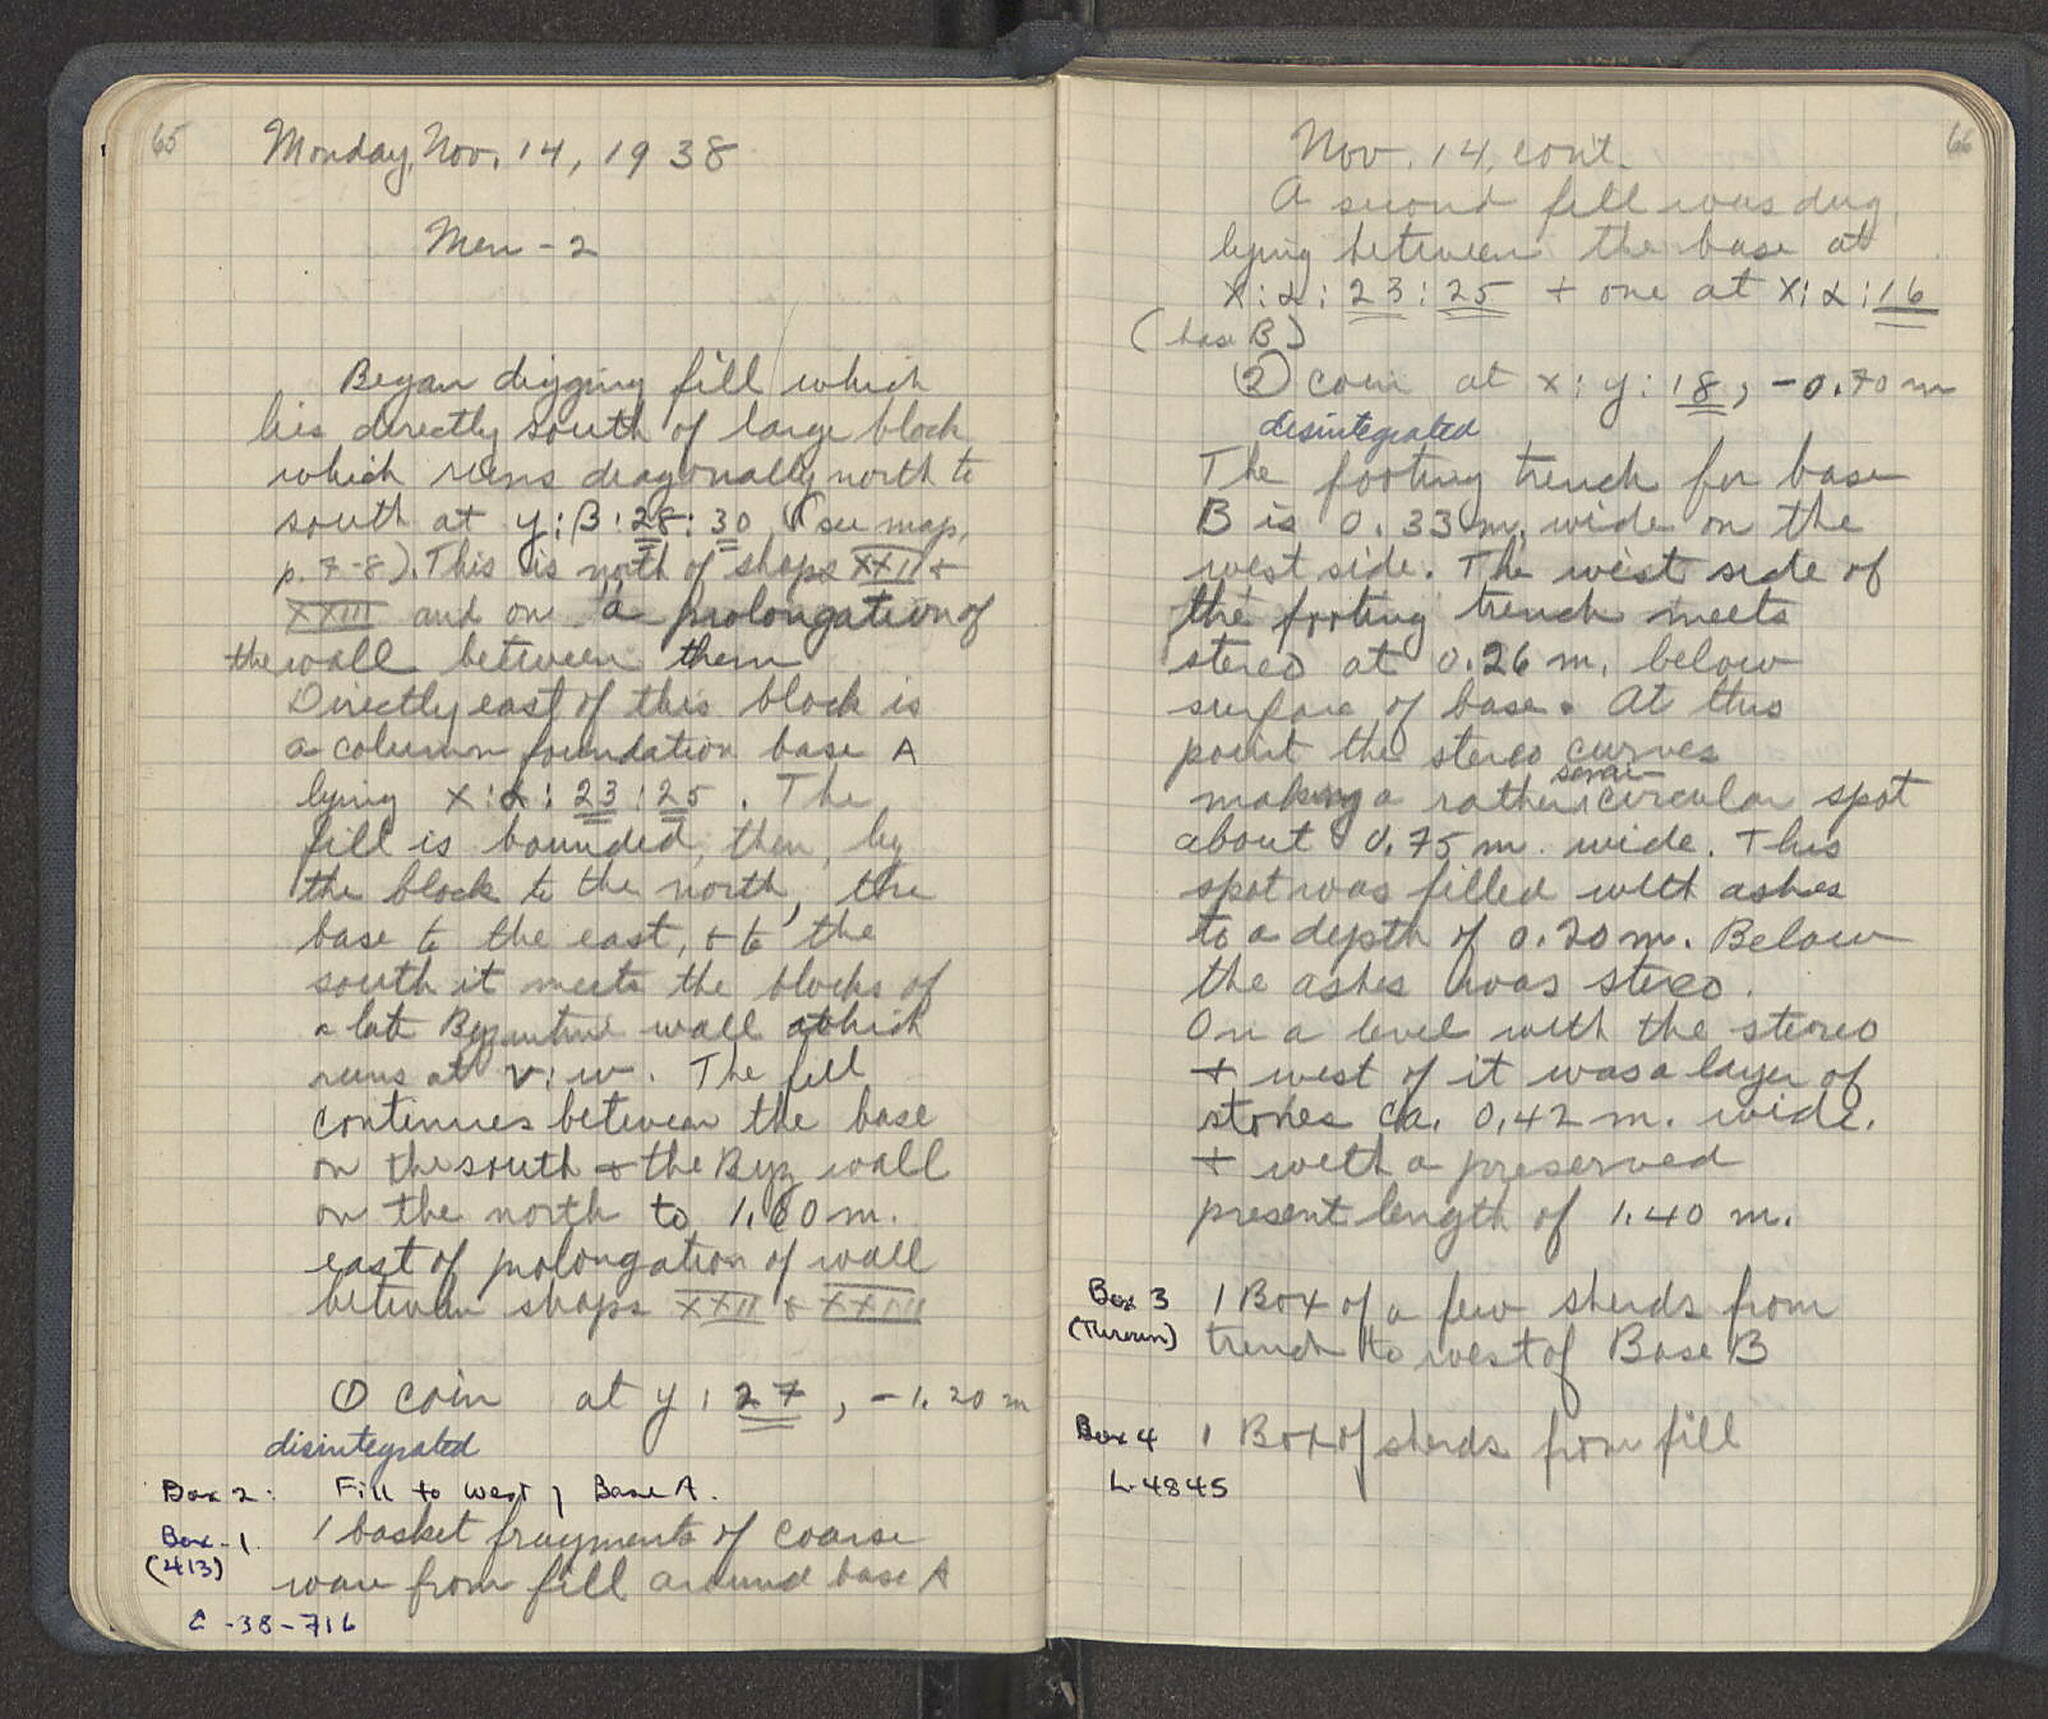 65
Monday, Nov. 14, 1938
Men - 2
Began digging fill which
lies directly south of large block
which runs diagonally north to
south at y:β:28:30 (see map,
p. 7-8). This is north of shops XXII +
XXIII and on a prolongation of
the wall between them
Directly east of this block is
a column foundation base A
lying x:α:23:25. The
fill is bounded, then, by
the block to the north, the
base to the east, + to the
south it meets the blocks of
a late Byzantine wall which
runs at v:w. The fill
continues between the base
on the south + the Byz wall
on the north to 1.60 m.
east of prolongation of wall
between shops XXII + XXIII
① coin at y:27, -1.20 m
disintegrated
Box 2: Fill to west of Base A.
Box-1 1 basket fragments of coarse
(413) ware from fill around base A
C-38-716
66
Nov. 14, cont.
A second fill was dug
lying between the base at
x:α:23:25 + one at x:α:16
(base B)
② coin at x:y:18, -0.70 m
disintegrated
The footing trench for base
B is 0.33 m. wide on the
west side. The west side of
the footing trench meets
stereo at 0.26 m. below
surface of base. At this
point the stereo curves
semi-
making a rather circular spot
about 0.75 m. wide. This
spot was filled with ashes
to a depth of 0.20 m. Below
the ashes was stereo.
On a level with the stereo
+ west of it was a layer of
stones ca. 0.42 m. wide.
+ with a preserved
present length of 1.40 m.
Box 3 1 Box of a few sherds from
trench to west of Base B
Box 4 1 Box of sherds from fill
L-4845